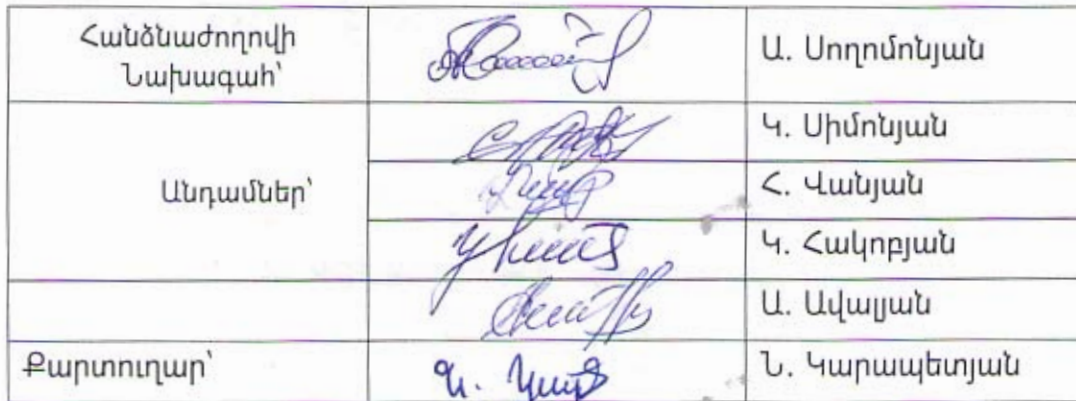 Հանձնաժողովի
Նախագահ՝
Ա. Սողոմոնյան
Կ. Սիմոնյան
Անդամներ՝
Հ. Վանյան
Կ. Հակոբյան
Ա. Ավալյան
Քարտուղար՝
Ն. Կարապետյան